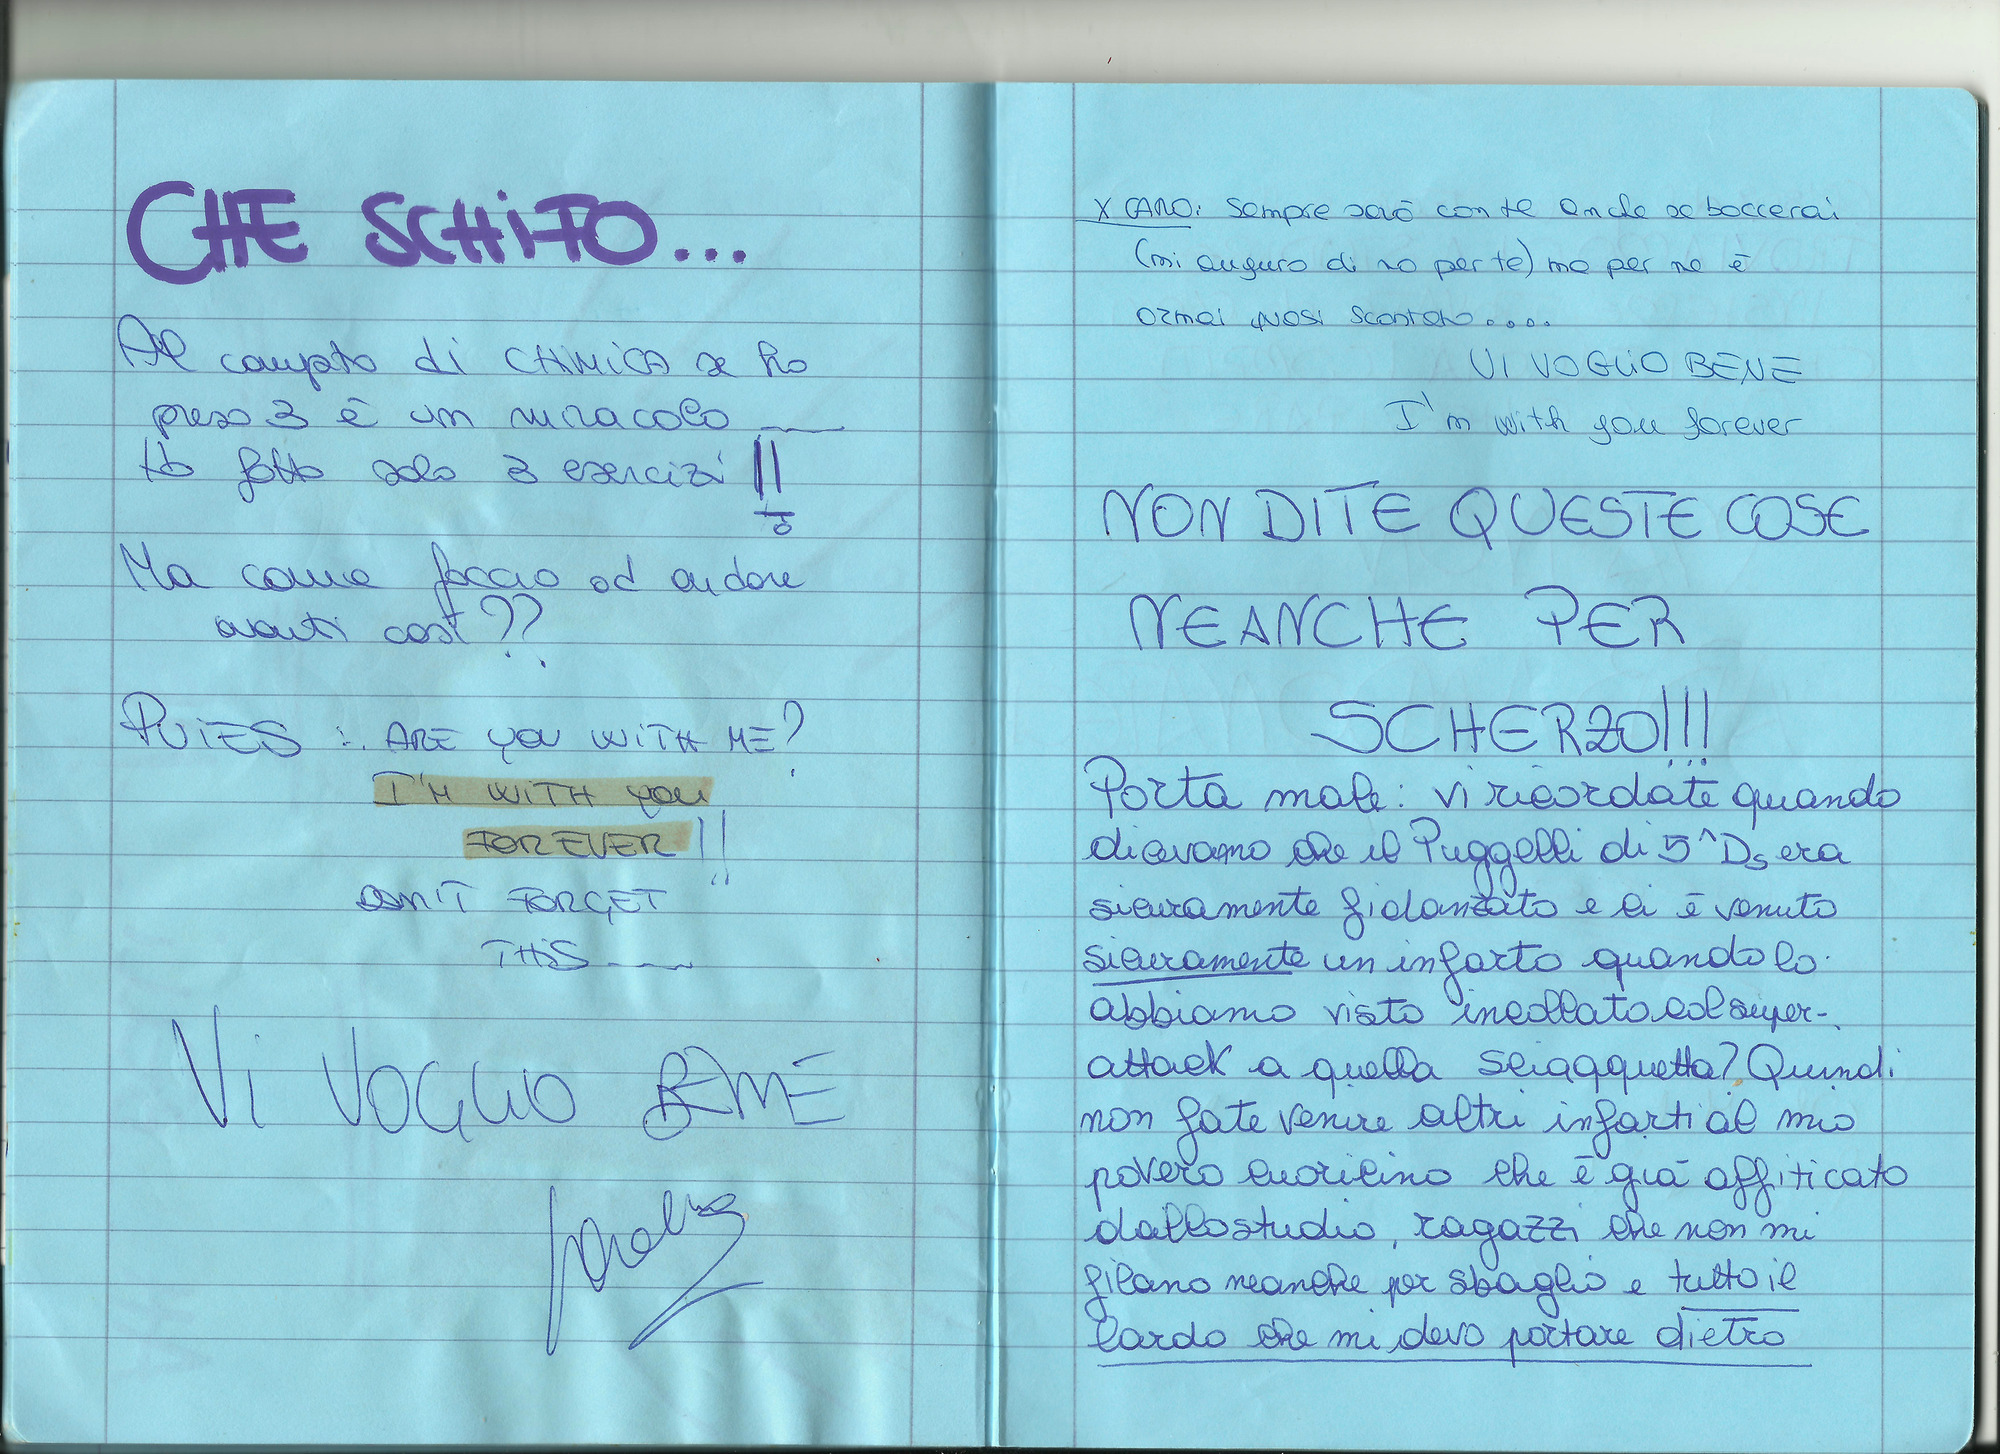 CHE SCHIFO...
Al compito di CHIMICA se ho
preso 3 è un miracolo
Ho fatto solo 3 esercizi!!
Ma come faccio ad andare
avanti così??
PUIES: ARE YOU WITH ME?
I'M WITH YOU
FOREVER!!
DON'T FORGET
THIS
VI VOGLIO BENE
X CARO: Sempre sarò con te anche se boccerai
(mi auguro di no per te) ma per me è
ormai quasi scontato....
VI VOGLIO BENE
I'm with you forever
NON DITE QUESTE COSE
NEANCHE PER
SCHERZO!!!
Porta male: vi ricordate quando
dicevamo che il Puggelli di 5^Ds era
sicuramente fidanzato e ci è venuto
sicuramente un infarto quando lo
abbiamo visto incollato col super-
attack a quella sciacquetta? Quindi
non fate venire altri infarti al mio
povero cuoricino che è già affiticato
dallo studio, ragazzi che non mi
filano neanche per sbaglio e tutto il
lardo che mi devo portare dietro